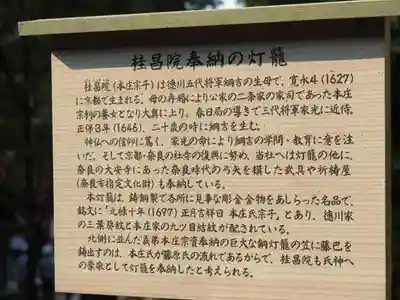 桂昌院奉納の灯籠
桂昌院(本庄宗子)は徳川五代将軍綱吉の生母で、寛永4(1627)
に京都で生まれる。母の再婚により公家の二条家の家司であった本庄
宗利の養女となり大奥に上り、春日局の導きで三代将軍家光に近侍。
正保3年(1646)、二十歳の時に綱吉を生む。
神仏への信仰に篤く、家光の命により綱吉の学問・教育に意を注
いだ。そして京都・奈良の社寺の復興に努め、当社へは灯籠の他に、
奈良の大安寺にあった奈良時代の弓矢を模した武具や祈祷屋
(奈良市指定文化財)も奉納している。
本灯籠は、鋳銅製で各所に見事な彫金金物をあしらった名品で、
銘文に「元禄十年(1697)正月吉祥日 本庄氏宗子」とあり、徳川家
の三葉葵紋と本庄家の九ツ目結紋が配されている。
北側に並んだ義弟本庄宗資奉納の巨大な銅灯籠の笠に藤巴を
鋳出すのは、本庄氏が藤原氏の流れであるからで、桂昌院も氏神へ
の崇敬として灯籠を奉納したと考えられる。